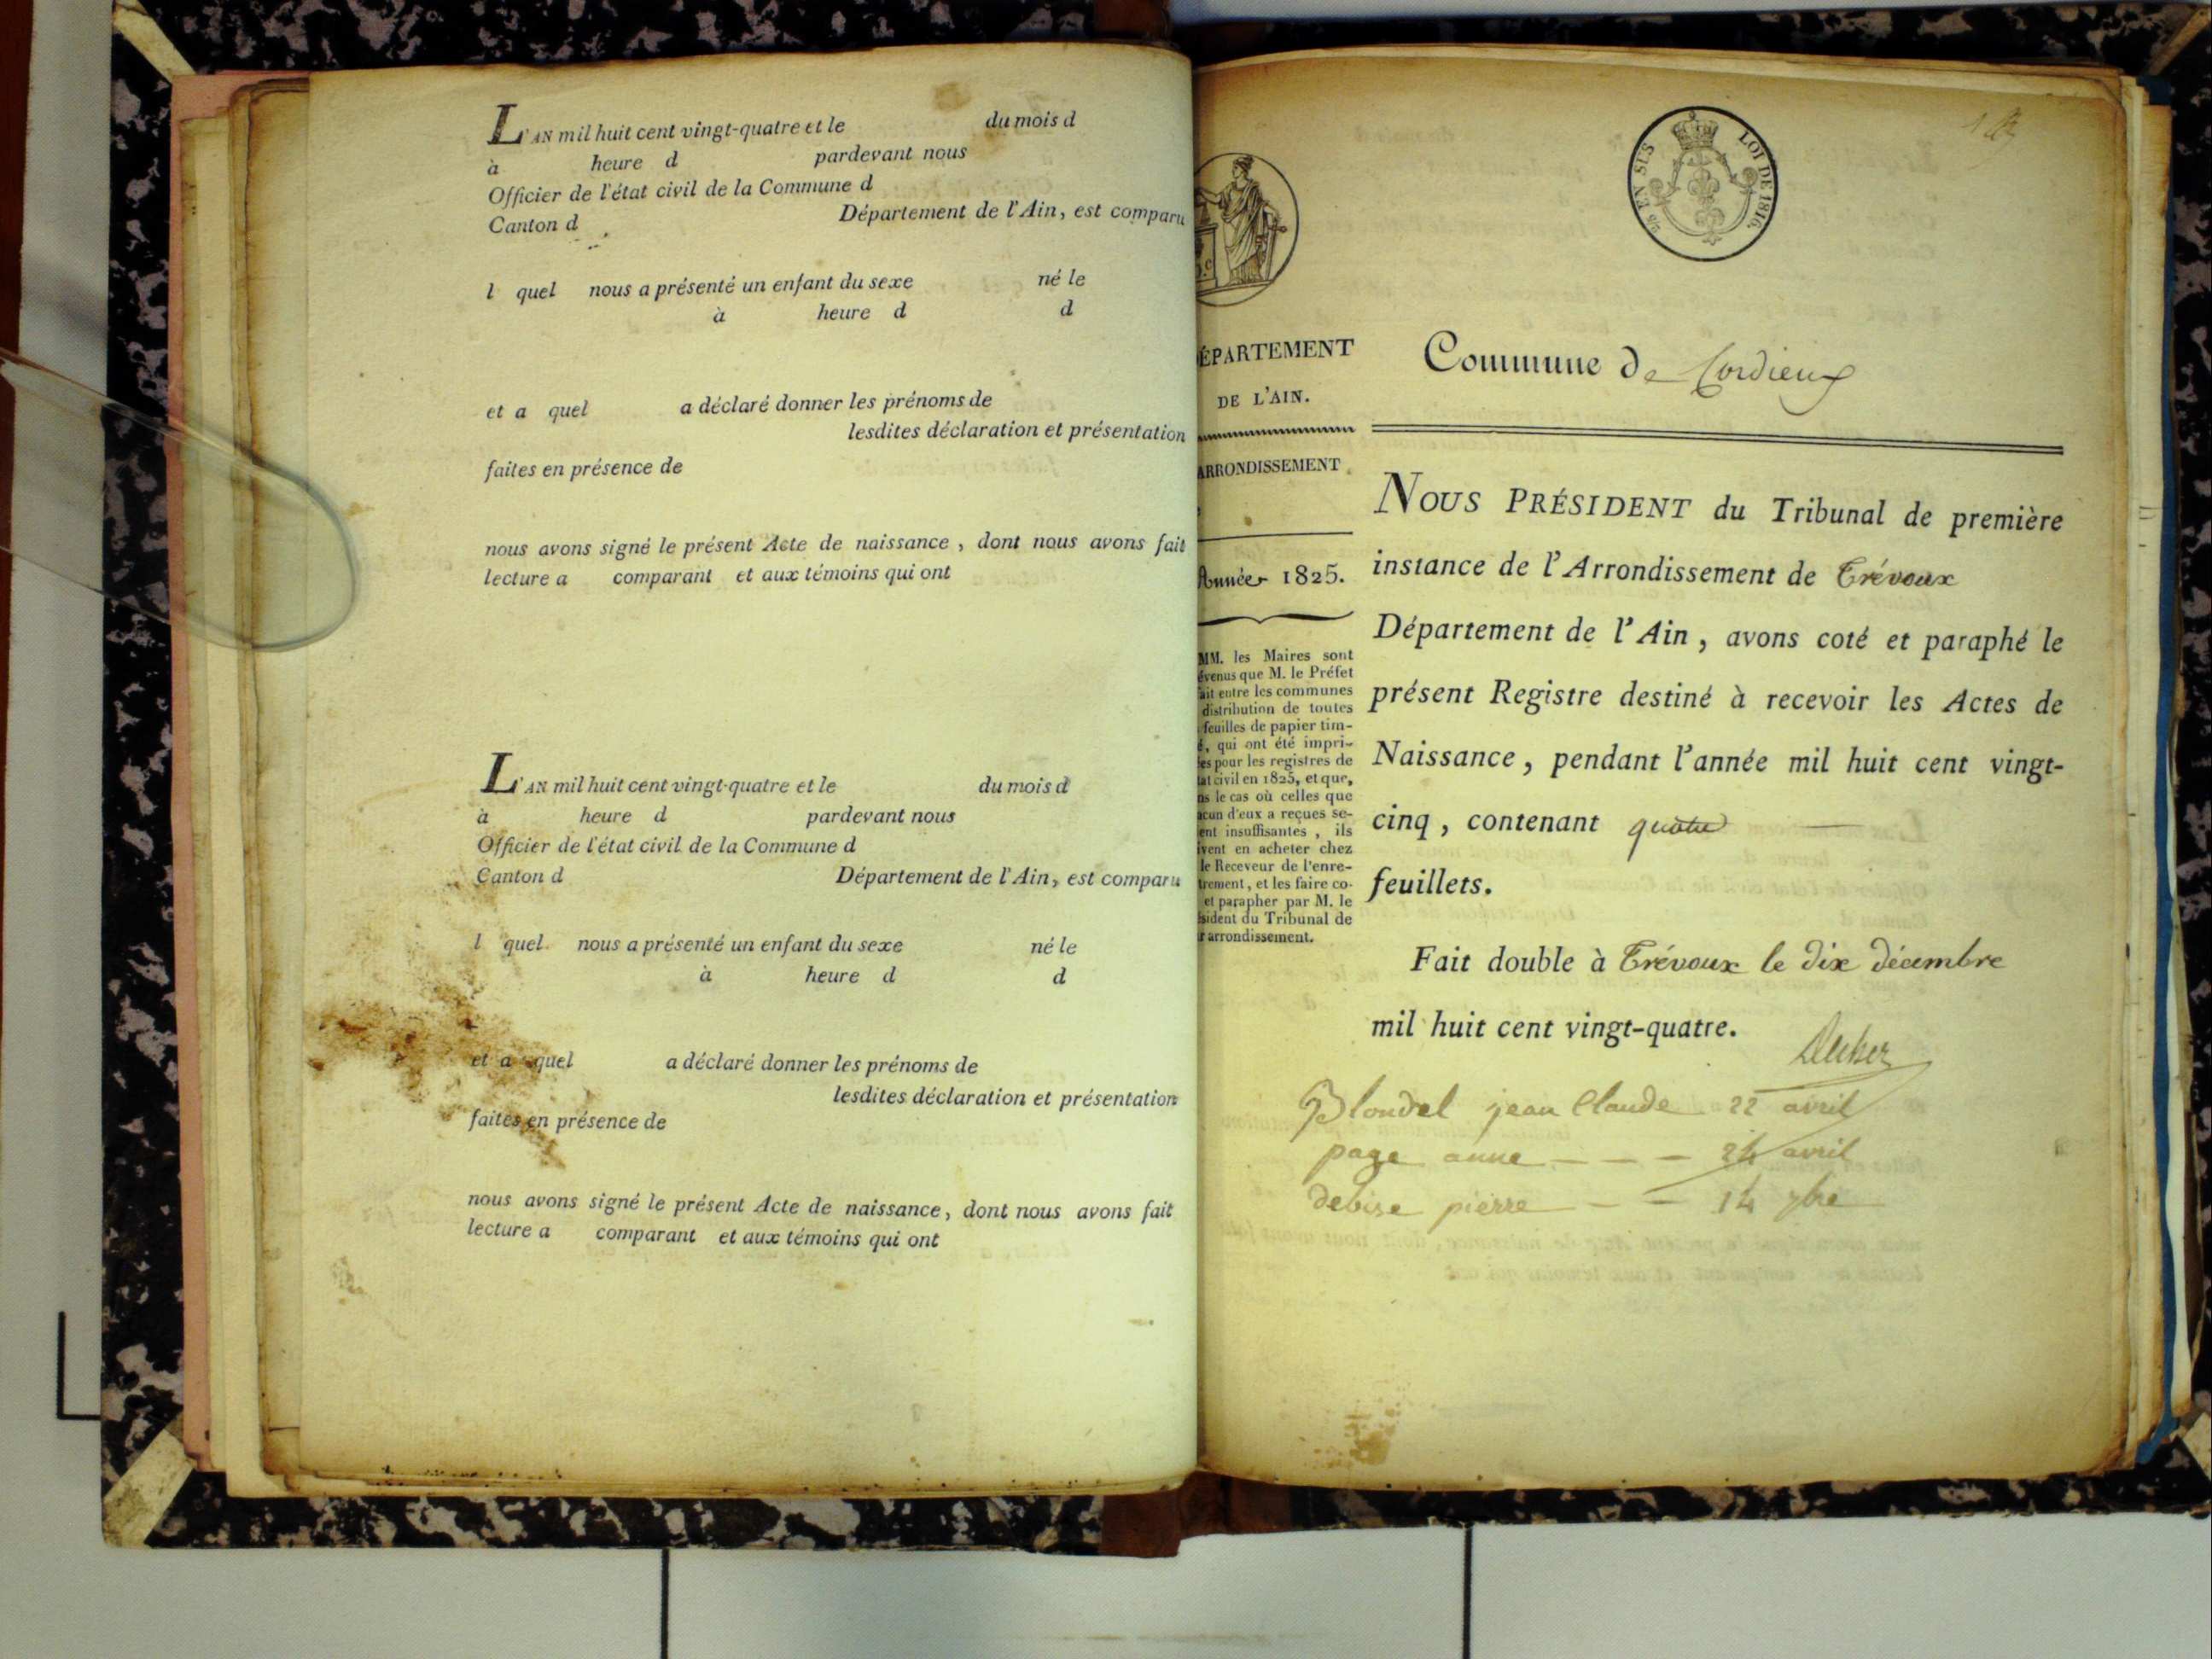 L'AN mil huit cent vingt-quatre et le du mois d
à heure d pardevant nous
Officier de l'état civil de la Commune d
Canton d Département de l'Ain, est comparu
l quel nous a présenté un enfant du sexe né le
à heure d d
et a quel a déclaré donner les prénoms de
lesdites déclaration et présentation
faites en présence de
nous avons signé le présent Acte de naissance, dont nous avons fait
lecture a comparant et aux témoins qui ont
L'AN mil huit cent vingt-quatre et le du mois d
à heure d pardevant nous
Officier de l'état civil de la Commune d
Canton d Département de l'Ain, est comparu
l quel nous a présenté un enfant du sexe né le
à heure d d
et a quel a déclaré donner les prénoms de
lesdites déclaration et présentation
faites en présence de
nous avons signé le présent Acte de naissance, dont nous avons fait
lecture a comparant et aux témoins qui ont
EN SUS
LOI DE 1816.
ÉPARTEMENT
DE L'AIN.
ARRONDISSEMENT
Année 1825.
MM. les Maires sont
évenus que M. le Préfet
ait entre les communes
distribution de toutes
feuilles de papier tim-
é, qui ont été impri-
es pour les registres de
tat civil en 1825, et que,
ns le cas où celles que
acun d'eux a reçues se-
ent insuffisantes, ils
ivent en acheter chez
le Receveur de l'enre-
trement, et les faire co-
et parapher par M. le
sident du Tribunal de
r arrondissement.
Commune de Cordieux
NOUS PRÉSIDENT du Tribunal de première
instance de l'Arrondissement de Trévoux
Département de l'Ain, avons coté et paraphé le
présent Registre destiné à recevoir les Actes de
Naissance, pendant l'année mil huit cent vingt-
cinq, contenant quatre
feuillets.
Fait double à Trévoux le dix décembre
mil huit cent vingt-quatre.
Blondel jean Claude 22 avril
page anne - - - 24 avril
debise pierre - - 14 7bre